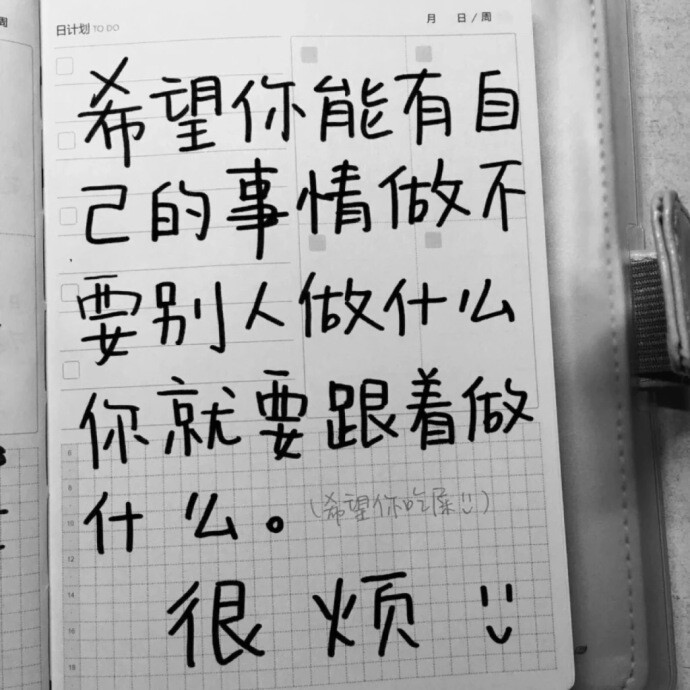 日计划 TO DO
月 日/周
希望你能有自
己的事情做不
要别人做什么
你就要跟着做
什么。(希望你吃屎!!)
很烦
6
8
10
12
14
16
18